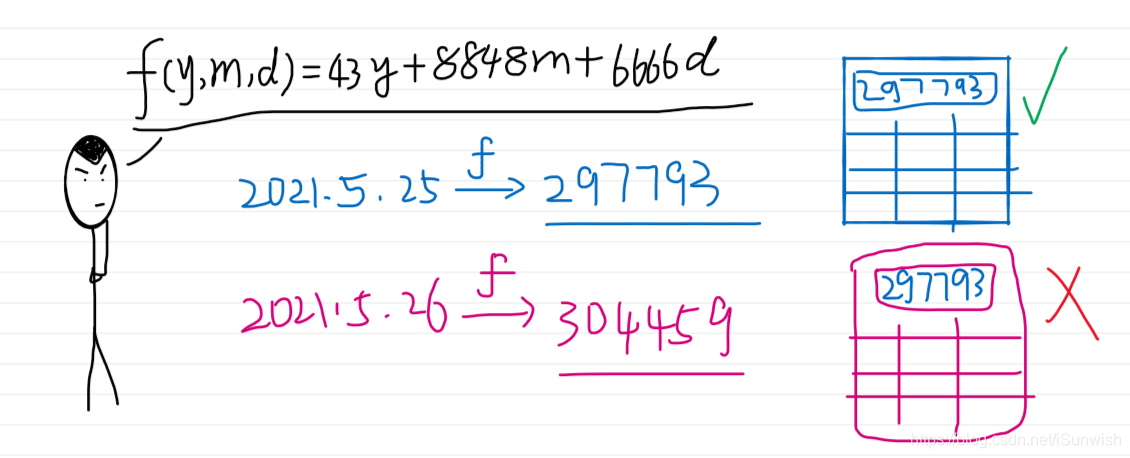 f(y,m,d)=43y+8848m+6666d
2021.5.25 f→ 297793
297793
2021.5.26 f→ 304459
297793
https://blog.csdn.net/iSunwish